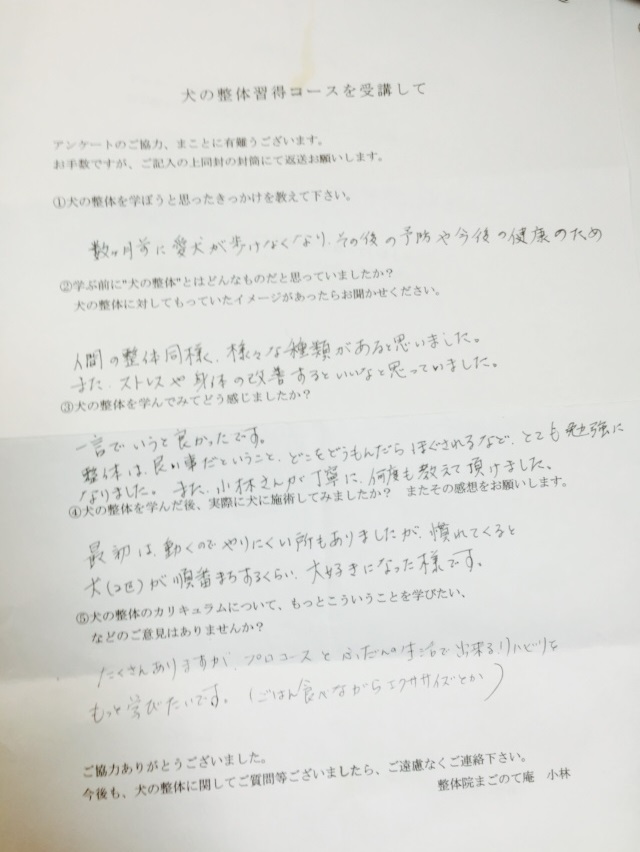 犬の整体習得コースを受講して
アンケートのご協力、まことに有難うございます。
お手数ですが、ご記入の上同封の封筒にて返送お願いします。
①犬の整体を学ぼうと思ったきっかけを教えて下さい。
数ヶ月前に愛犬が歩けなくなり、その後の予防や今後の健康のため
②学ぶ前に"犬の整体"とはどんなものだと思っていましたか?
犬の整体に対してもっていたイメージがあったらお聞かせください。
人間の整体同様、様々な種類があると思いました。
また、ストレスや身体の改善するといいなと思っていました。
③犬の整体を学んでみてどう感じましたか?
一言でいうと良かったです。
整体は、良い事だということ、どこをどうもんだらほぐされるなど、とても勉強に
なりました。また、小林さんが丁寧に、何度も教えて頂けました。
④犬の整体を学んだ後、実際に犬に施術してみましたか? またその感想をお願いします。
最初は、動くのでやりにくい所もありましたが、慣れてくると
犬(2匹)が順番まちするくらい、大好きになった様です。
⑤犬の整体のカリキュラムについて、もっとこういうことを学びたい、
などのご意見はありませんか?
たくさんありますが、プロコースとふだんの生活で出来るリハビリを
もっと学びたいです。(ごはん食べながらエクササイズとか)
ご協力ありがとうございました。
今後も、犬の整体に関してご質問等ございましたら、ご遠慮なくご連絡下さい。
整体院まごのて庵 小林